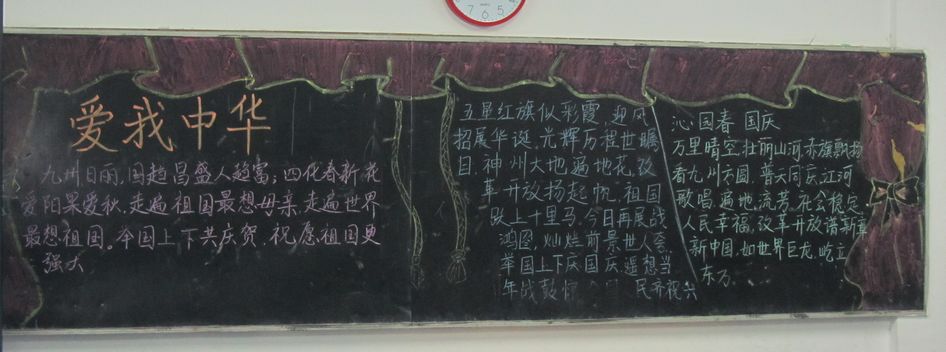 7 6 5
爱我中华
九州日丽,国趋昌盛人趋富;四化春新花
爱阳果爱秋,走遍祖国最想母亲,走遍世界
最想祖国。举国上下共庆贺,祝愿祖国更
强大
五星红旗似彩霞,迎风
招展华诞,光辉历程世瞩
目,神州大地遍地花,改
革开放扬起帆,祖国
跃上千里马,今日再展战
鸿图,灿烂前景世人夸,
举国上下庆国庆,遥想当
年战鼓 民齐祝
沁园春 国庆
万里晴空,壮丽山河,赤旗飘扬
看九州方圆,普天同庆,江河
歌唱,遍地流芳,社会稳定,
人民幸福,改革开放谱新章
新中国,如世界巨龙,屹立
东方.